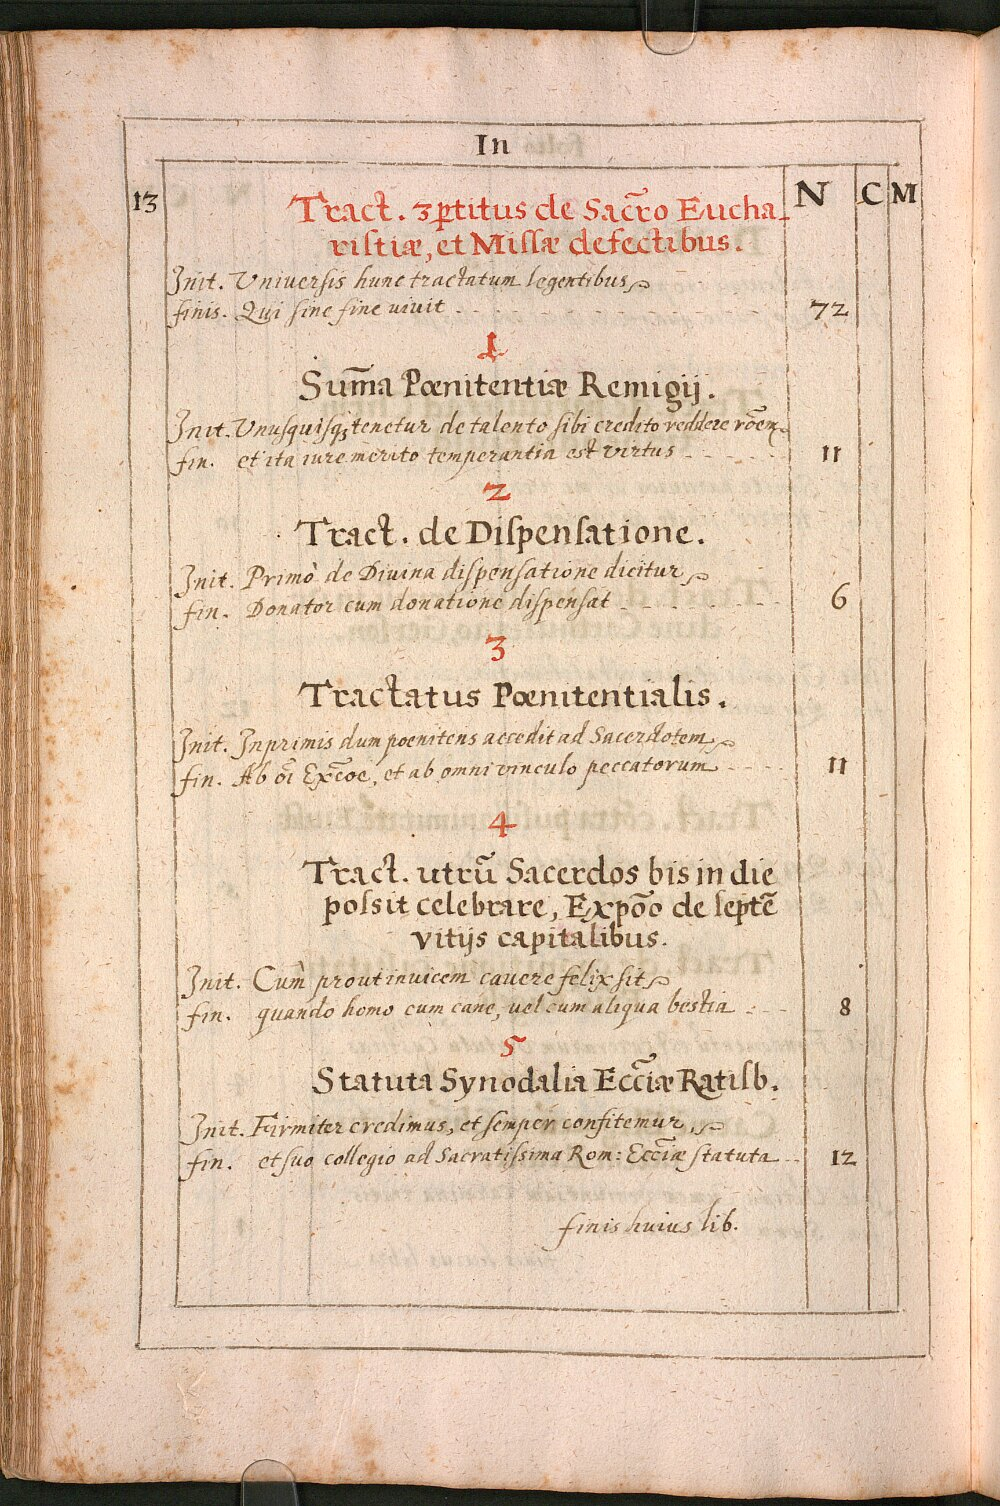 In
13 N C M
Tract. 3ptitus de Sacro Eucha-
ristiæ, et Missæ defectibus.
Init. Universis hunc tractatum legentibus
finis. Qui sine fine vivit . . 72
1
Sum̃a Pœnitentiæ Remigij.
Init. Unusquisq₃ tenetur de talento sibi credito reddere rõem
fin. et ita iure merito temperantia est virtus . . . . . 11
2
Tract. de Dispensatione.
Init. Primò de Divina dispensatione dicitur
fin. Donator cum donatione dispensat . . . . . . . 6
3
Tractatus Pœnitentialis.
Init. Inprimis dum poenitens accedit ad Sacerdotem
fin. Ab oĩ Exc̃oe, et ab omni vinculo peccatorum . . . . 11
4
Tract. utrũ Sacerdos bis in die
possit celebrare, Expõo de septẽ
vitijs capitalibus.
Init. Cum prout invicem cavere felix sit
fin. quando homo cum cane, vel cum aliqua bestia . . . 8
5
Statuta Synodalia Ecc̃iæ Ratisb.
Init. Firmiter credimus, et semper confitemur,
fin. et suo collegio ad Sacratissima Rom: Ecc̃iæ statuta . . 12
finis huius lib.